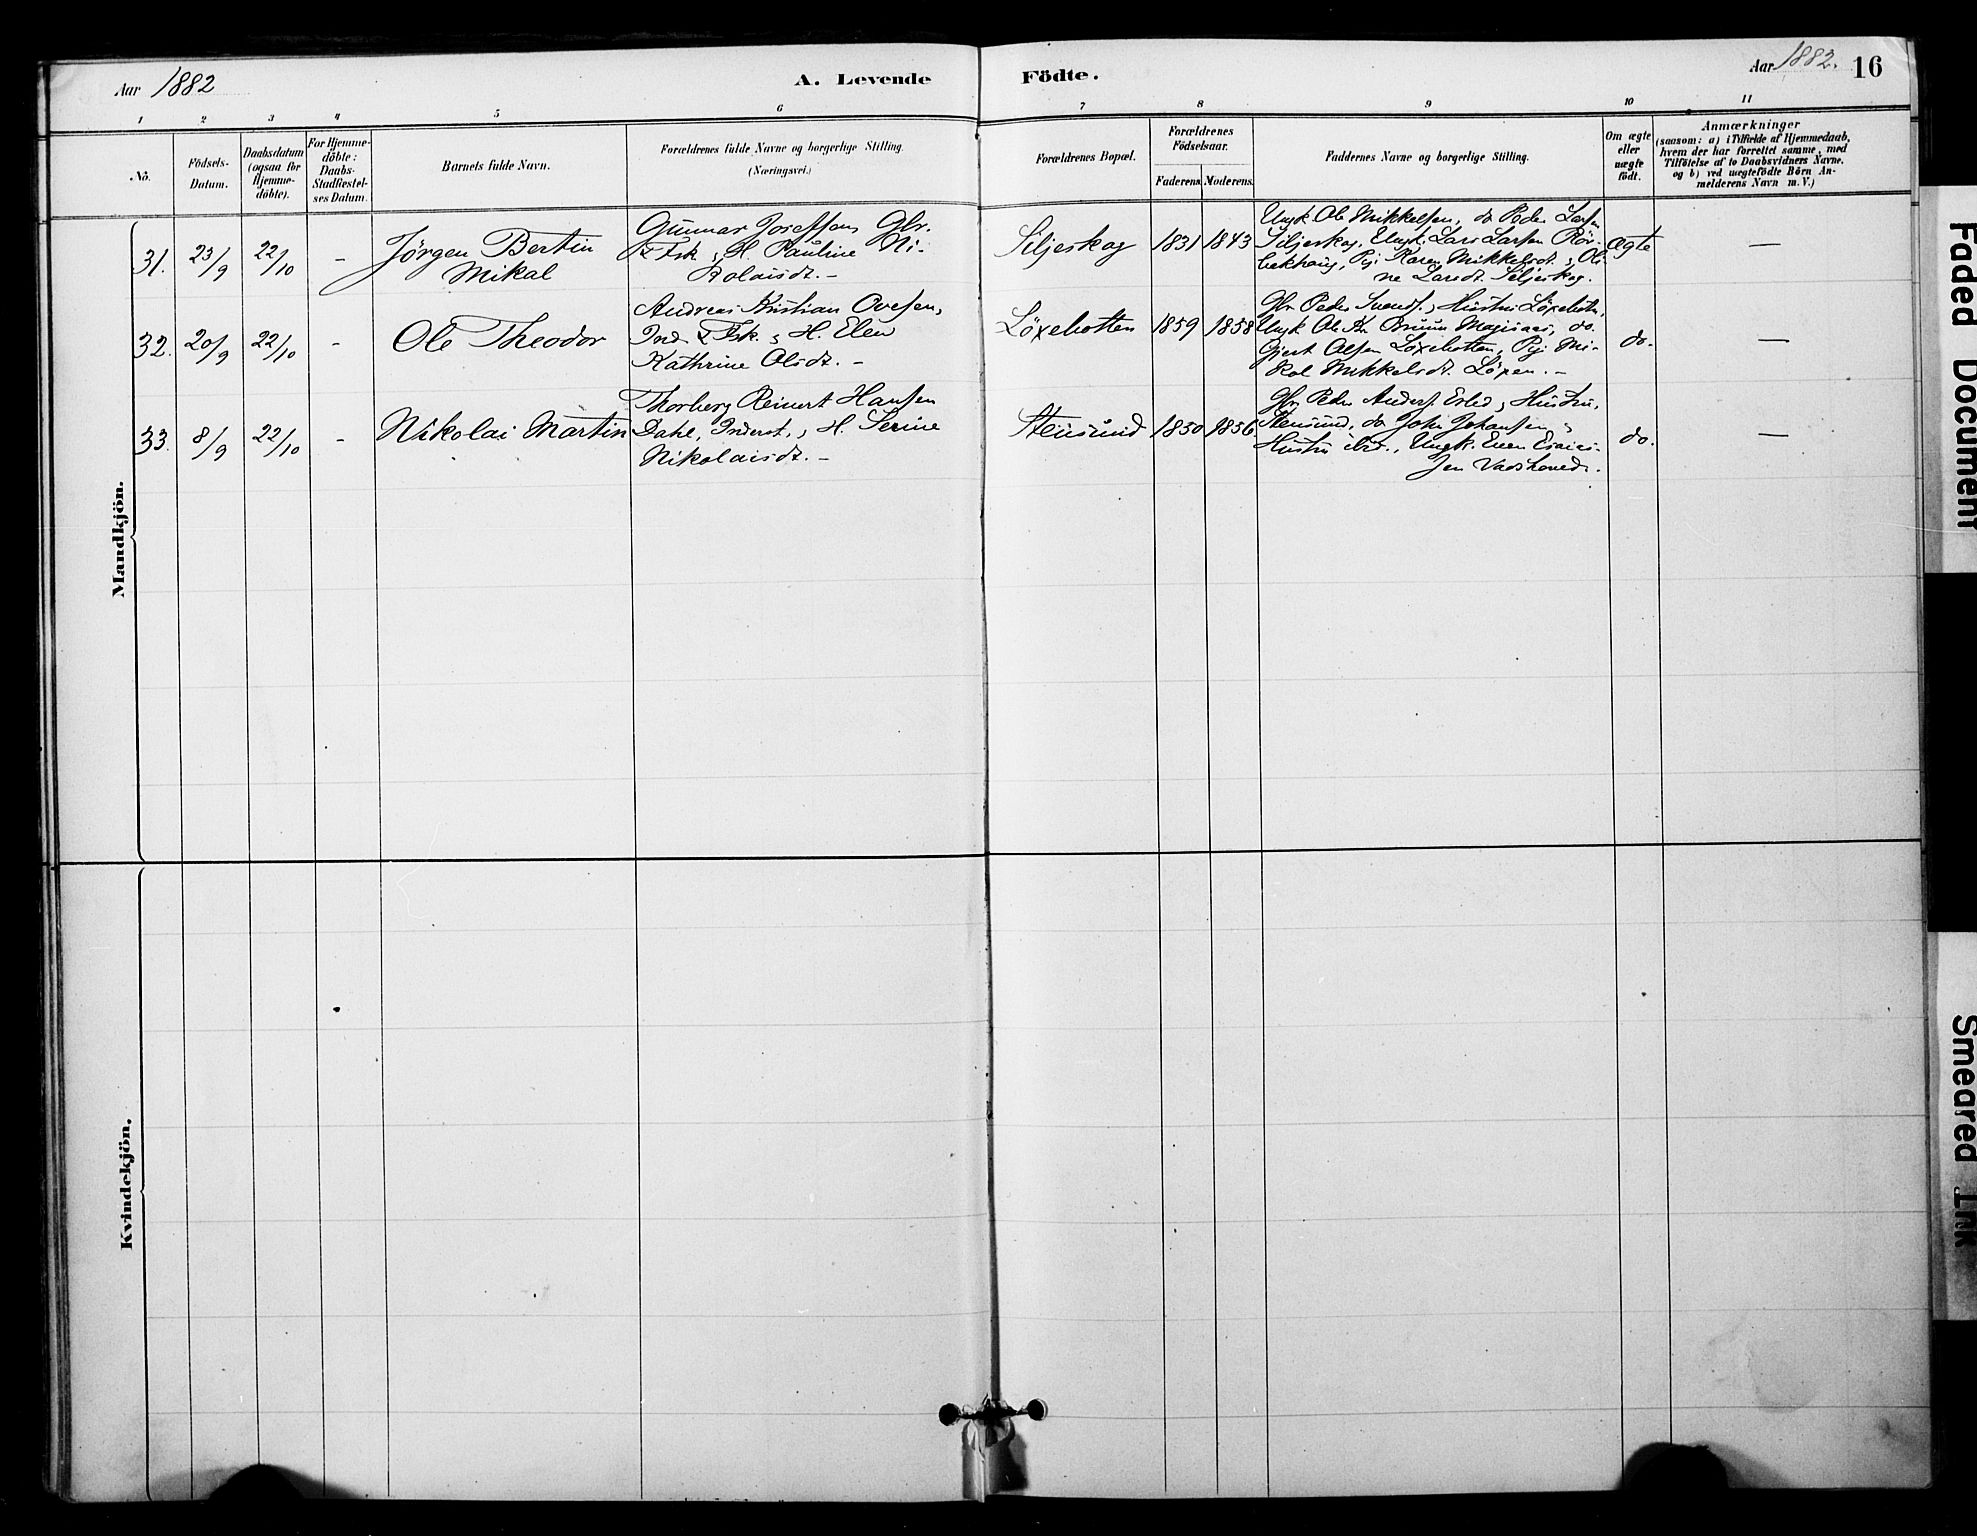 Aar 1882
A. Levende
Födte.
Aar 1882. 16
1 2 3 4 5 6 7 8 9 10 11
No.
Födsels-
Datum.
Daabsdatum
(ogsaa for
Hjemme-
döbte).
For Hjemme-
döbte:
Daabs-
Stadfæstel-
ses Datum.
Barnets fulde Navn.
Forældrenes fulde Navne og borgerlige Stilling.
(Næringsvei.)
Forældrenes Bopæl.
Forældrenes
Födselsaar.
Faderens. Moderens.
Faddernes Navne og borgerlige Stilling.
Om ægte
eller
uægte
födt.
Anmærkninger
(saasom: a) i Tilfælde af Hjemmedaab,
hvem der har forrettet samme, med
Tilföielse af to Daabsvidners Navne,
og b) ved uægtefödte Börn An-
melderens Navn m. V.)
Mandkjön.
31. 23/9 22/10 -
Jörgen Bertin
Mikal
Gunnar Joseffsens Gbr.
& Fsk. H. Pauline Ni-
kolaisdt. -
Siljeskog 1831 1843
Ungk. Ole Mikkelsen, do Peder Larsen
Siljeskog, Ungk. Lars Larsen Rör-
bækhaug, Pig. Karen Mikkelsdt. Oli-
ne Larsdt. Siljeskog.
Ægte —
32. 20/9 22/10 -
Ole Theodor
Andreas Kristian Ovesen,
Ind. & Fsk. H. Elen
Kathrine Olsdt. -
Löxebotten 1859 1858
Gbr. Peder Hustru Löxebotn,
Ungk. Ole Kr. Bruun do.
Gjert Olsen Löxebotten, Pig. Mi-
kal Mikkelsdt. Löxen. -
do. —
33. 8/9 22/10 -
Nikolai Martin
Thorberg Reinert Hansen
Dahl, Inderst. H. Serine
Nikolaisdt. -
Stensund 1850 1856
Gbr. Peder Anders. Hustru,
Stensund, do John Johansen
Hustru ibid., Ungk. Esaias-
sen
do. —
Kvindekjön.
Faded Document
Smeared Ink